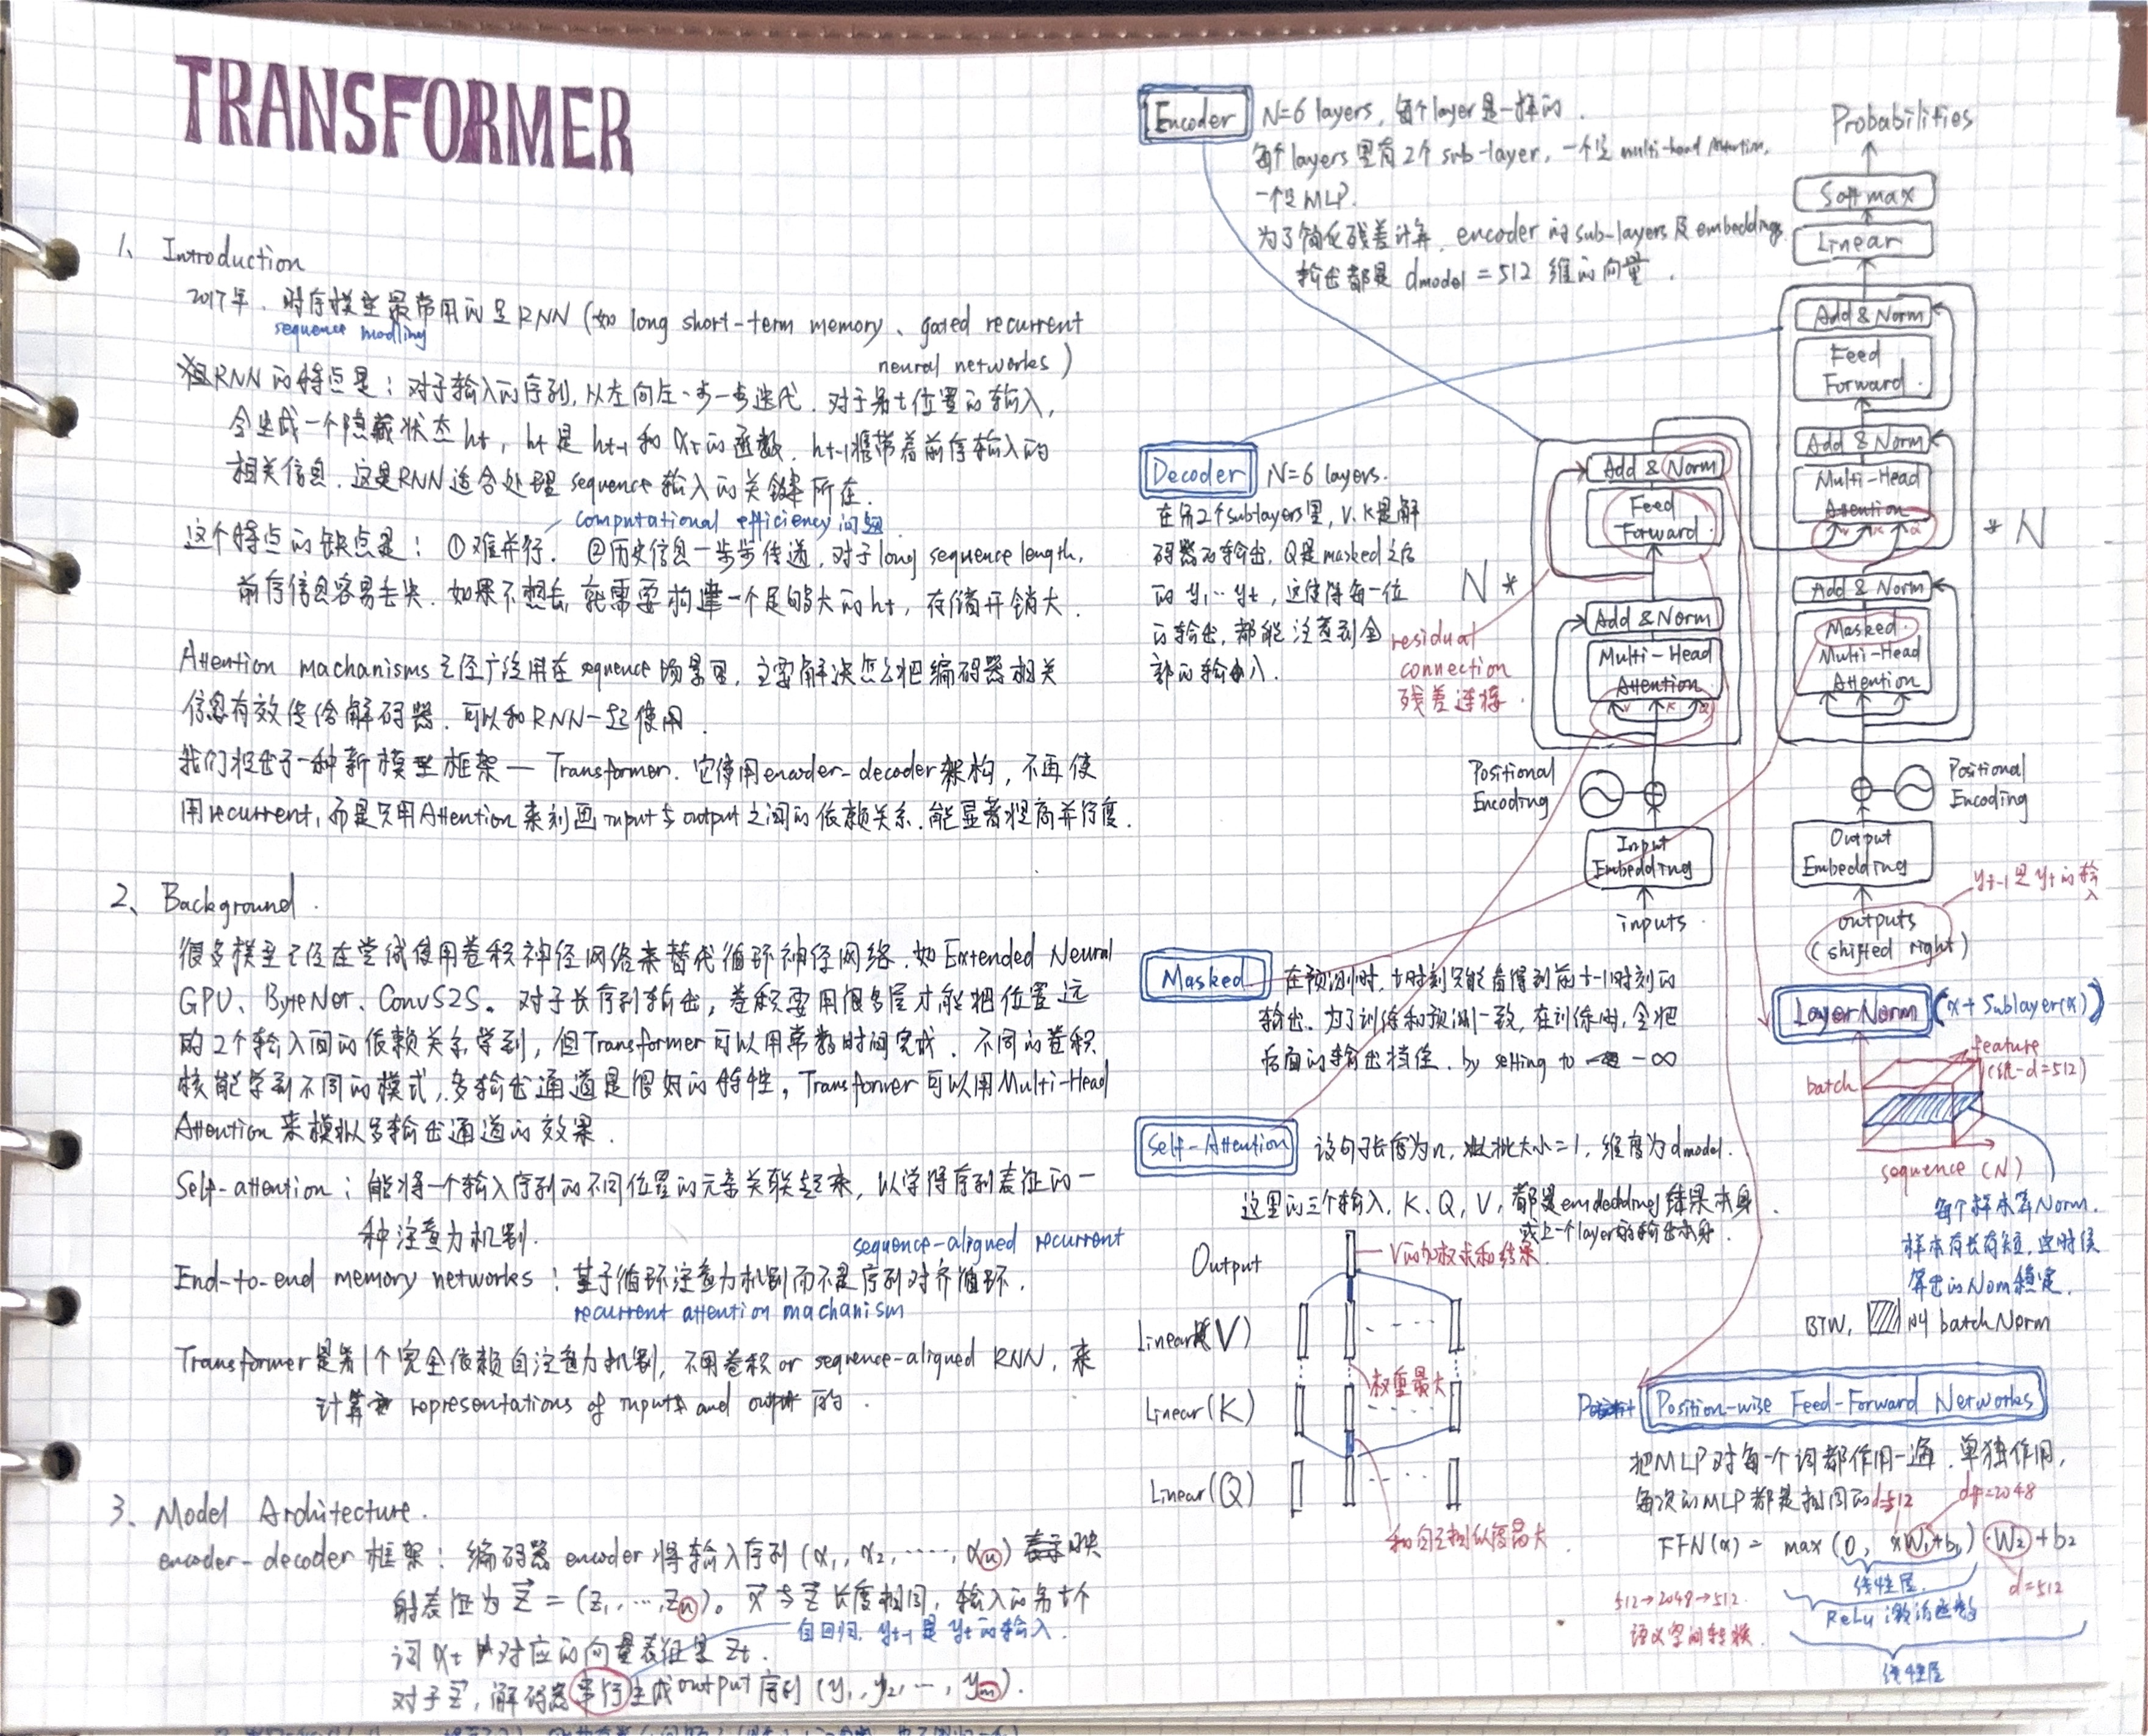 TRANSFORMER
1、Introduction
2017年,时序模型最常用的是RNN(如 long short-term memory、gated recurrent
sequence modling
neural networks)
RNN的特点是:对于输入的序列,从左向左一步一步迭代.对于第t位置的输入,
会生成一个隐藏状态ht,ht是ht-1和xt的函数.ht-1携带着前序输入的
相关信息.这是RNN适合处理sequence输入的关键所在.
computational efficiency问题
这个特点的缺点是:①难并行.②历史信息一步步传递,对于long sequence length,
前序信息容易丢失.如果不想丢,就需要构建一个足够大的ht,存储开销大.
Attention machanisms已经广泛用在sequence场景里,主要解决怎么把编码器相关
信息有效传给解码器.可以和RNN一起使用
我们提出了一种新模型框架— Transformer.它使用encoder-decoder架构,不再使
用recurrent,而是只用Attention来刻画input与output之间的依赖关系.能显著提高并行度.
2、Background.
很多模型已经在尝试使用卷积神经网络来替代循环神经网络.如Extended Neural
GPU、ByteNet、ConvS2S。对于长序列输出,卷积要用很多层才能把位置远
的2个输入间的依赖关系学到,但Transformer可以用常数时间完成.不同的卷积
核能学到不同的模式,多输出通道是很好的特性。Transformer可以用Multi-Head
Attention来模拟多输出通道的效果.
Self-attention:能将一个输入序列的不同位置的元素关联起来,以学得序列表征的一
种注意力机制.
sequence-aligned recurrent
End-to-end memory networks:基于循环注意力机制而不是序列对齐循环.
recurrent attention machanism
Transformer是第1个完全依赖自注意力机制,不用卷积or sequence-aligned RNN,来
计算 representations of inputs and output 的.
3、Model Architecture.
encoder-decoder框架:编码器encoder将输入序列(x1,x2,……,xn)映
射表征为z⃗=(z1,…,zn)。x⃗与z⃗长度相同,输入的第t个
词xt对应的向量表征是zt.
自回归,yt-1是yt的输入.
对于z⃗,解码器串行生成output序列(y1,y2,…,ym).
Encoder
N=6 layers,每个layer是一样的.
每个layers里有2个sub-layer,一个是multi-head Attention,
一个是MLP.
为了简化残差计算,encoder的sub-layers及embeddings
输出都是dmodel=512维的向量.
Decoder
N=6 layers.
在第2个sublayers里,V.K是解
码器的输出,Q是masked之后
的y1…yt,这使得每一位
的输出,都能注意到全
部的输入.
Probabilities
Softmax
Linear
Add & Norm
Feed
Forward
Add & Norm
Multi-Head
Attention
V K Q
* N
Add & Norm
Masked
Multi-Head
Attention
Positional
Encoding
Output
Embedding
outputs
(shifted right)
yt-1是yt的输
入
Add & Norm
Feed
Forward
N *
Add & Norm
Multi-Head
Attention
V K Q
residual
connection
残差连接.
Positional
Encoding
Input
Embedding
inputs
Masked
在预测时,t时刻只能看得到前t-1时刻的
输出.为了训练和预测一致,在训练时,会把
后面的输出挡住.by setting to -∞
Self-Attention
设句子长度为n,批大小=1,维度为dmodel.
这里的三个输入,K、Q,V,都是embedding结果本身
或上一个layer的输出本身.
Output
V的加权求和结果
Linear(V)
权重最大
Linear(K)
Linear(Q)
和自己相似度最大
LayerNorm (x+Sublayer(x))
feature
(统一d=512)
batch
sequence(N)
每个样本算Norm.
样本有长有短,这时候
算出的Norm稳定.
BTW, 叫batchNorm
Position-wise Feed-Forward Networks
把MLP对每一个词都作用一遍.单独作用,
每次的MLP都是相同的
d=512
dff=2048
FFN(x)=max(0, xW1+b1)·W2+b2
线性层
d=512
512→2048→512.
ReLu激活函数
语义空间转换.
线性层